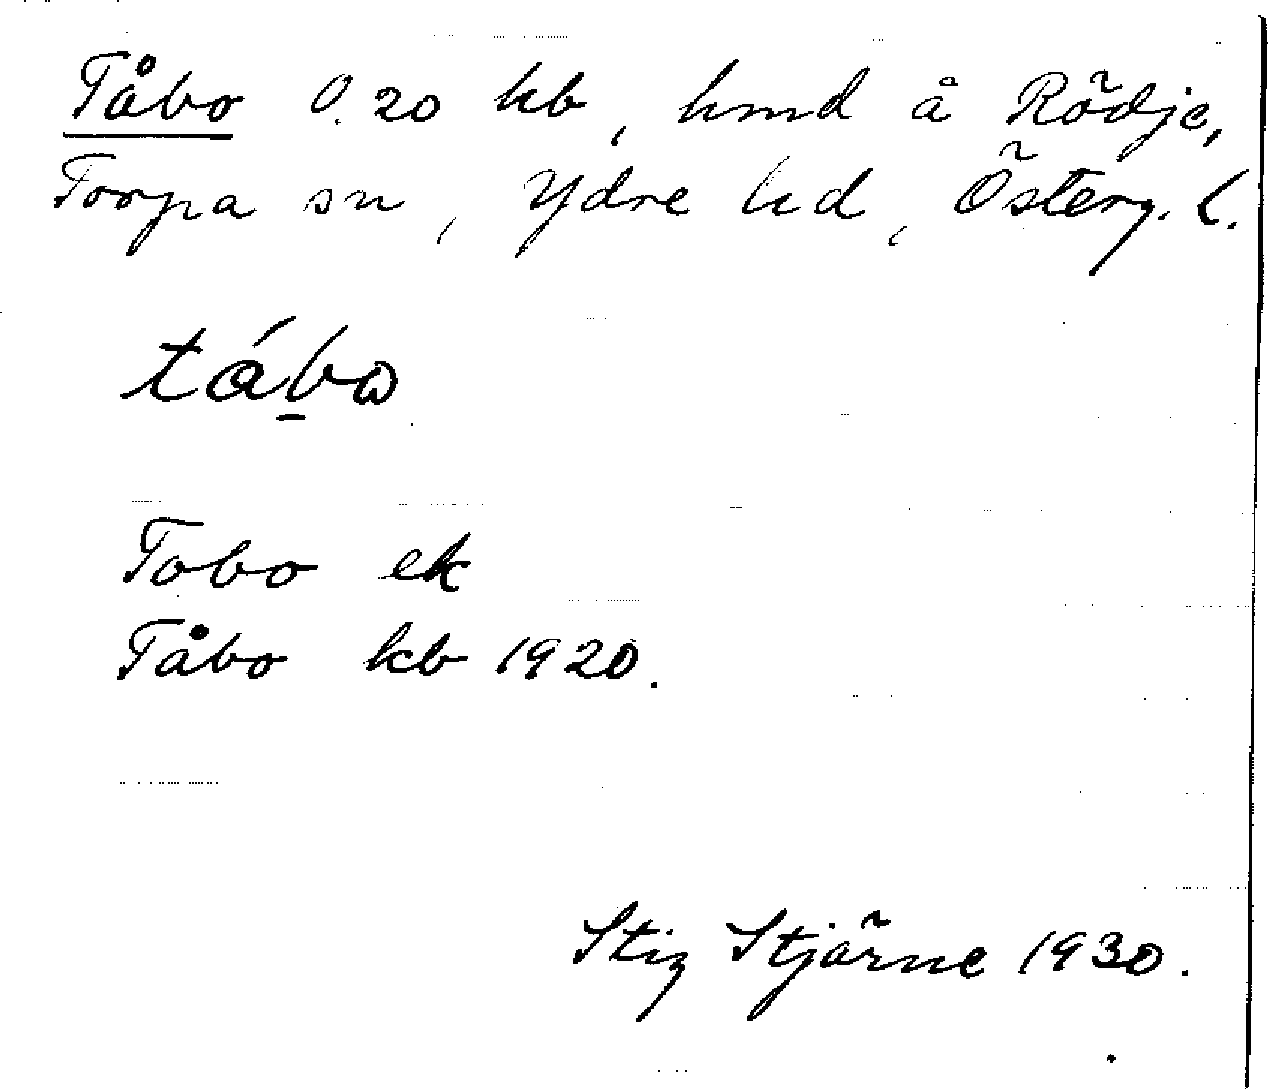 Tåbo 0.20 kb, hmd å Rödje,
Torpa sn, Ydre hd, Österg. l.
tábω
Tobo ek
Tåbo kb 1920.
Stig Stjärne 1930.